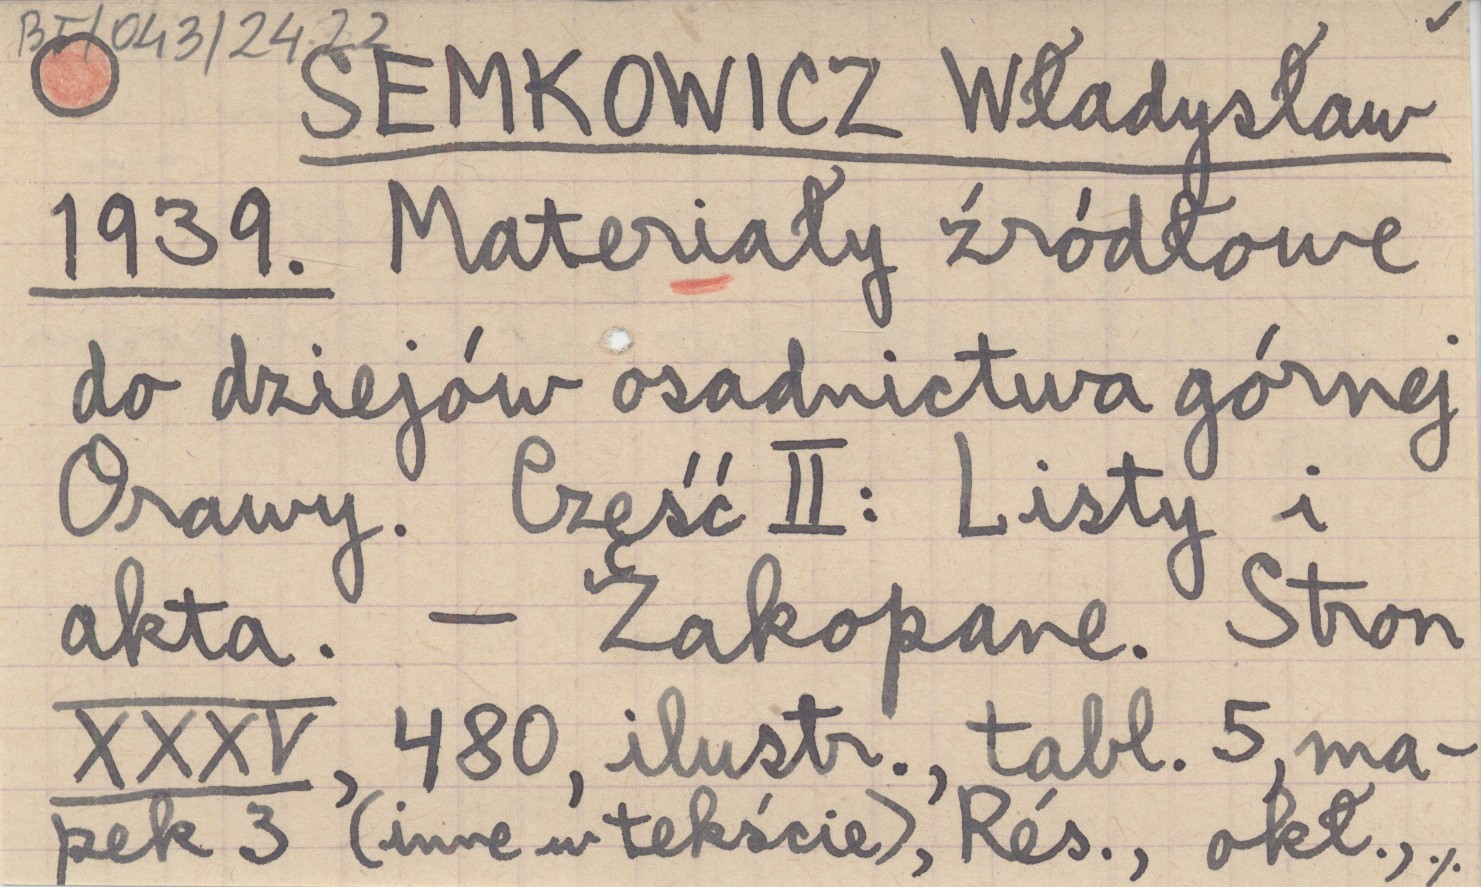 BI/043/24.22
SEMKOWICZ Władysław
1939. Materiały źródłowe
do dziejów osadnictwa górnej
Orawy. Część II: Listy i
akta. — Zakopane. Stron
XXXV, 480, ilustr., tabl. 5, ma-
pek 3 (inne w tekście), Rés., okł., ./.